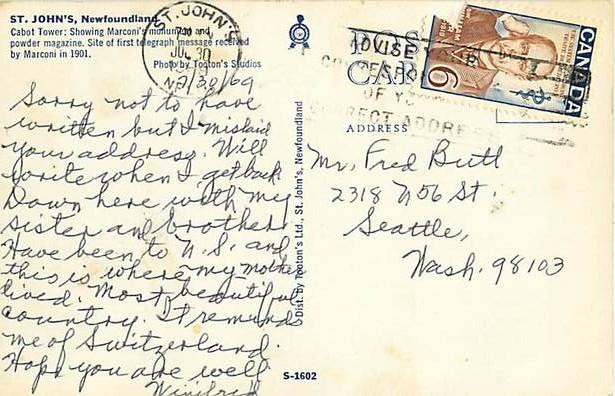 ST. JOHN'S, Newfoundland
Cabot Tower: Showing Marconi's monument and
powder magazine. Site of first telegraph message received
by Marconi in 1901.
Photo by Tooton's Studios
ST. JOHN'S
7/30/69
Sorry not to have
written but I mislaid
your address. Will
write when I get back
Down here with my
sister and brother.
Have been to N.S. and
this is where my mother
lived. Most beautiful
country. It reminds
me of Switzerland.
Hope you are well
Winifred
Dist. by Tooton's Ltd., St. John's, Newfoundland
S-1602
POST
CARD
OF YO
CORRECT ADDRESS
6
CANADA
ADDRESS
Mr. Fred Butt
2318 N 56 St.
Seattle,
Wash. 98103